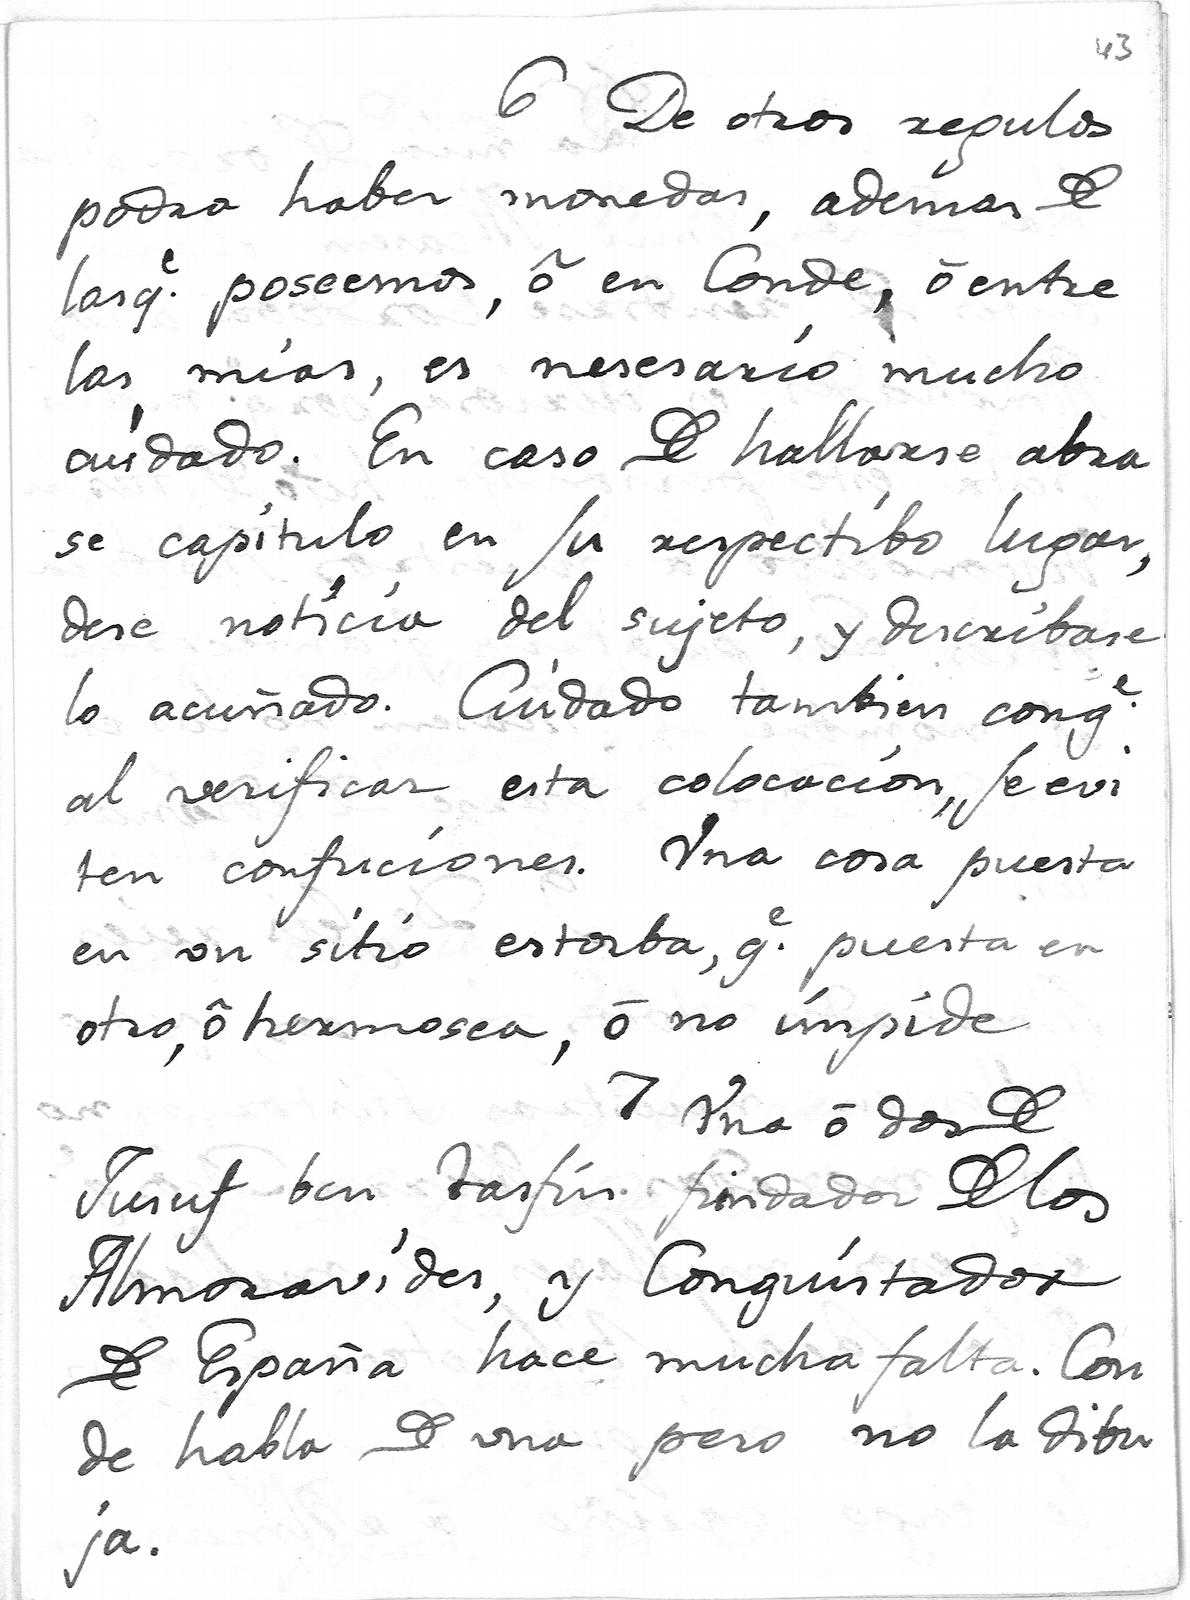 43
6 De otros regulos
podra haber monedas, ademas de
las q.e poseemos, õ en Conde, õ entre
las mias, es nesesario mucho
cuidado. En caso de hallarse abra
se capitulo en su respectibo lugar,
dese noticia del sujeto, y describase
lo acuñado. Cuidado tambien conq.e
al verificar esta colocacion, se evi
ten confuciones. Vna cosa puesta
en vn sitio estorba, q.e puesta en
otro, õ hermosea, õ no impide
7 Vna õ dos de
Jusuf ben Tasfin fundador de los
Almoravides, y Conquistador
de España hace mucha falta. Con
de habla de vna pero no la dibu
ja.